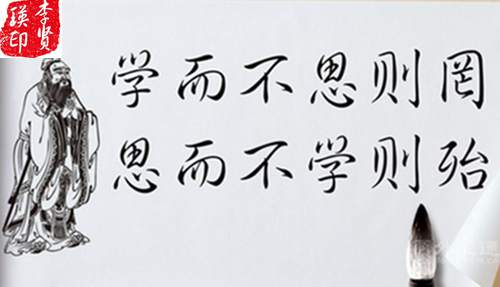 李贤
瑛印
学而不思则罔
思而不学则殆